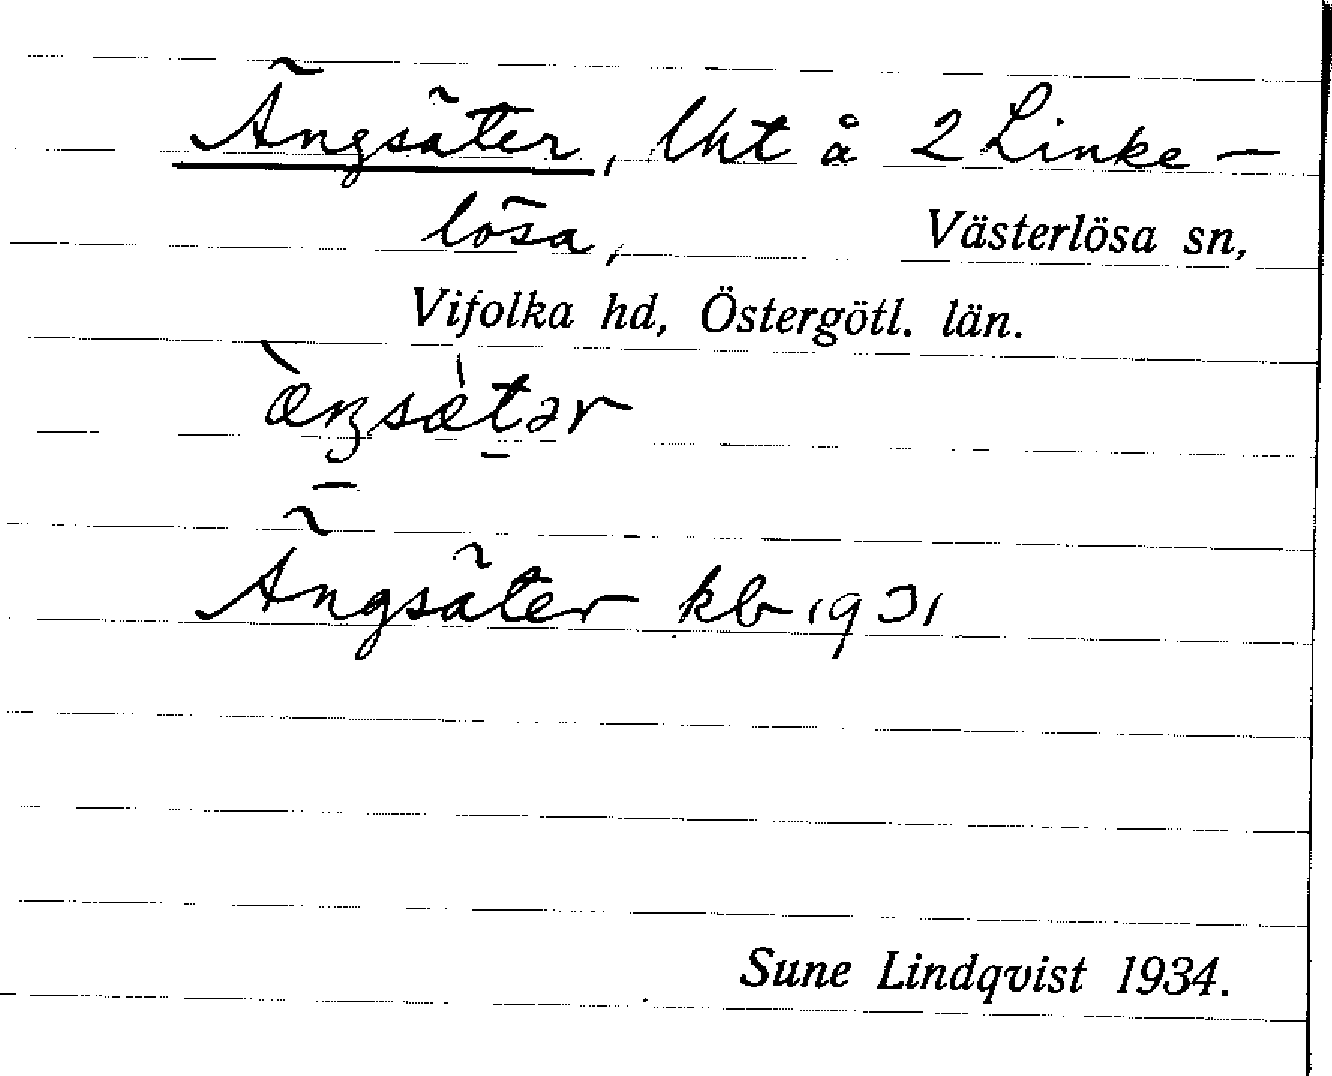 Ängsäter, lht å 2 Linke-
lösa, Västerlösa sn,
Vifolka hd, Östergötl. län.
æ̀ŋsæ̀tər
Ängsäter kb 1931
Sune Lindqvist 1934.